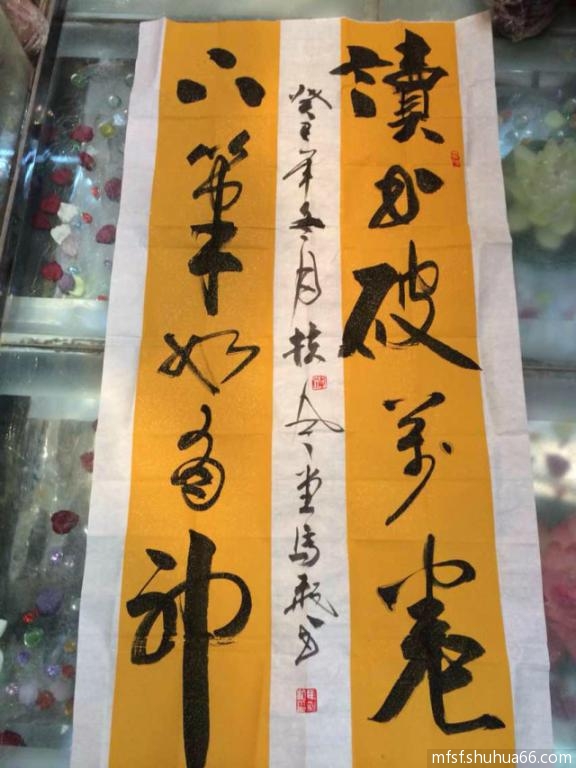 讀書破萬卷
下筆如有神
癸巳年冬月扶風堂馬書
mfsf.shuhua66.com